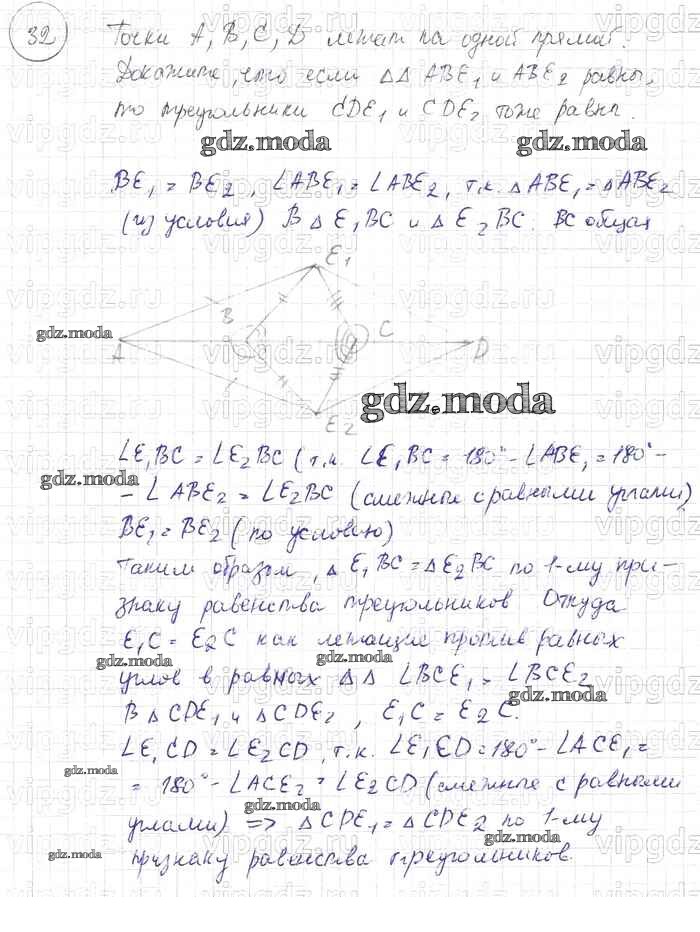 32
Точки A, B, C, D лежат на одной прямой.
Докажите, что если △△ ABE₁ и ABE₂ равны,
то треугольники CDE₁ и CDE₂ тоже равны.
gdz.moda gdz.moda
BE₁ = BE₂, ∠ABE₁ = ∠ABE₂, т.к. △ABE₁ = △ABE₂
(из условия) В △ E₁BC и △ E₂BC. BC общая
E₁
gdz.moda
B C
A D
gdz.moda
E₂
∠E₁BC = ∠E₂BC (т.к. ∠E₁BC = 180° - ∠ABE₁ = 180° -
gdz.moda
- ∠ABE₂ = ∠E₂BC (смежные с равными углами)
BE₁ = BE₂ (по условию)
Таким образом, △ E₁BC = △E₂BC по 1-му при-
знаку равенства треугольников Откуда
E₁C = E₂C как лежащие против равных
gdz.moda gdz.moda
углов в равных △△ ∠BCE₁ = ∠BCE₂
gdz.moda
В △CDE₁ и △CDE₂, E₁C = E₂C.
∠E₁CD = ∠E₂CD, т.к. ∠E₁CD = 180° - ∠ACE₁ =
gdz.moda
= 180° - ∠ACE₂ = ∠E₂CD (смежные с равными
gdz.moda
углами) => △CDE₁ = △CDE₂ по 1-му
gdz.moda gdz.moda
признаку равенства треугольников.